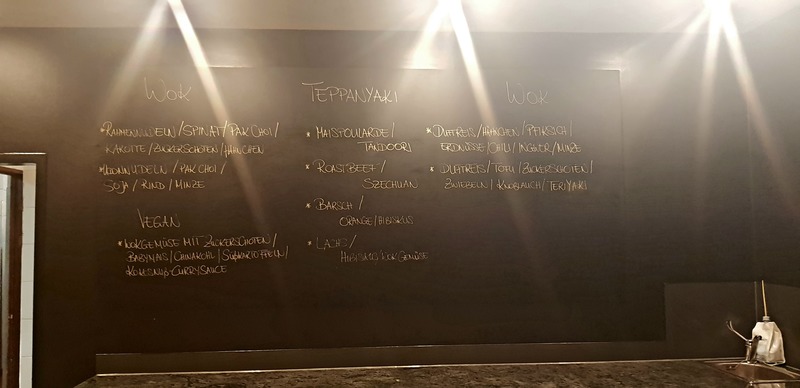 WOK
*RAMENNUDELN/SPINAT/PAK CHOI/
KAROTTE/ZUCKERSCHOTEN/HÄHNCHEN
*UDONNUDELN/PAK CHOI/
SOJA/RIND/MINZE
VEGAN
*WOKGEMÜSE MIT ZUCKERSCHOTEN/
BABYMAIS/CHINAKOHL/SÜßKARTOFFELN/
KOKOSNUß-CURRYSAUCE
TEPPANYAKI
*MAISPOULARDE/
TANDOORI
*ROASTBEEF/
SZECHUAN
*BARSCH/
ORANGE/HIBISKUS
*LACHS/
HIBISKUS WOKGEMÜSE
WOK
*DUFTREIS/HÄHNCHEN/PFIRSICH/
ERDNÜSSE/CHILI/INGWER/MINZE
*DUFTREIS/TOFU/ZUCKERSCHOTEN/
ZWIEBELN/KNOBLAUCH/TERIYAKI